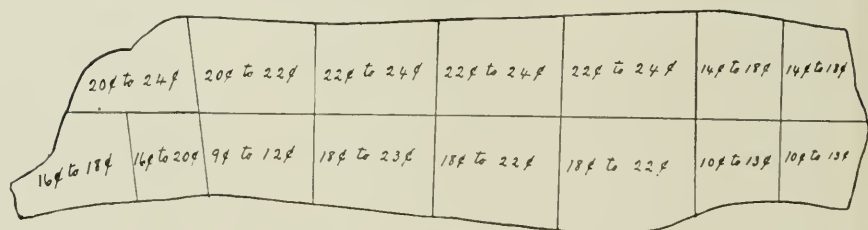 20¢ to 24¢ 20¢ to 22¢ 22¢ to 24¢ 22¢ to 24¢ 22¢ to 24¢ 14¢ to 18¢ 14¢ to 18¢
16¢ to 18¢ 16¢ to 20¢ 9¢ to 12¢ 18¢ to 23¢ 18¢ to 22¢ 18¢ to 22¢ 10¢ to 13¢ 10¢ to 13¢